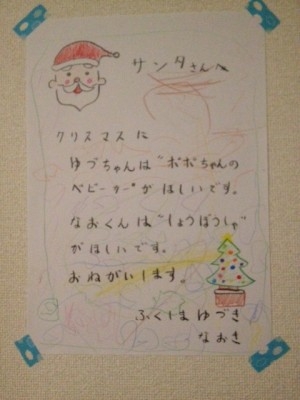 サンタさんへ
クリスマスに
ゆづちゃんは"ポポちゃんの
ベビーカー"がほしいです。
なおくんは"しょうぼうしゃ"
がほしいです。
おねがいします。
ふくしま ゆづき
なおき